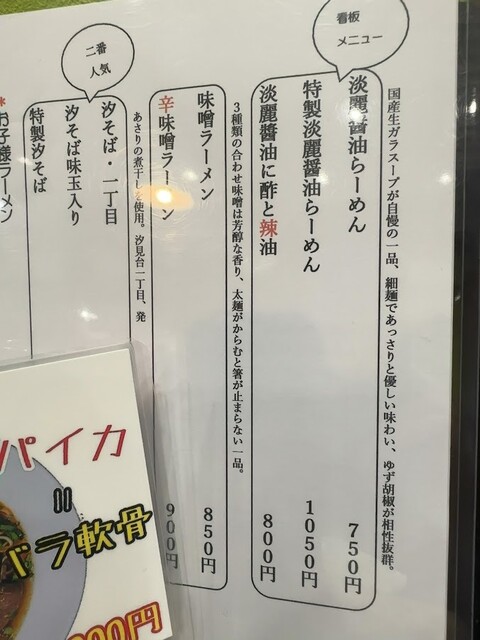 国産生ガラスープが自慢の一品、細麺であっさりと優しい味わい、ゆず胡椒が相性抜群。
看板
メニュー
淡麗醤油らーめん 750円
特製淡麗醤油らーめん 1050円
淡麗醤油に酢と辣油 800円
3種類の合わせ味噌は芳醇な香り、太麺がからむと箸が止まらない一品。
味噌ラーメン 850円
辛味噌ラーメン 900円
あさりの煮干しを使用。汐見台一丁目、発
二番
人気
汐そば・一丁目
汐そば味玉入り
特製汐そば
*お子様ラーメン
パイカ
=
バラ軟骨
00円